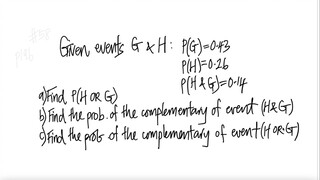 Given events G & H: P(G)=0.43
P(H)=0.26
P(H & G)=0.14
a) Find P(H OR G)
b) Find the prob. of the complementary of event (H & G)
c) Find the prob of the complementary of event (H OR G)